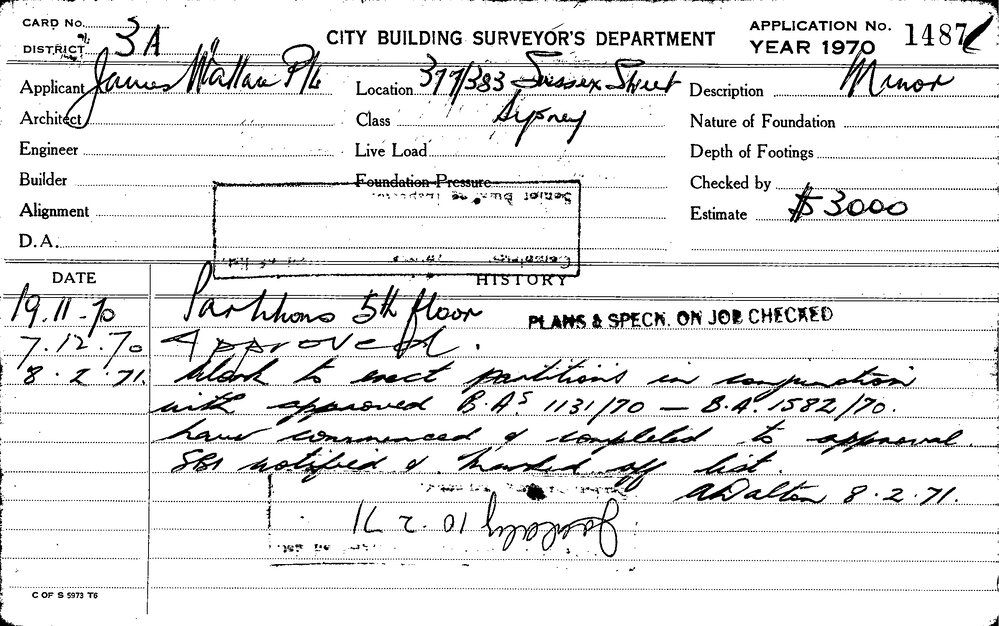 CARD No.
DISTRICT 3A
CITY BUILDING SURVEYOR'S DEPARTMENT
APPLICATION No. 1487
YEAR 1970
Applicant James Wallace P/L
Location 377/383 Sussex Street
Description Minor
Architect
Class Sydney
Nature of Foundation
Engineer
Live Load
Depth of Footings
Builder
Foundation Pressure
Checked by
Senior Building Inspector
Alignment
Estimate $3000
D.A.
DATE
HISTORY
19.11.70 Partitions 5th floor
PLANS & SPECN. ON JOB CHECKED
7.12.70 Approved.
8.2.71. Work to erect partitions in conjunction
with approved B.A.s 1131/70 — B.A. 1582/70.
have commenced & completed to approval.
SBI notified & marked off list.
A Dalton 8.2.71.
10.2.71
C OF S 5973 T6